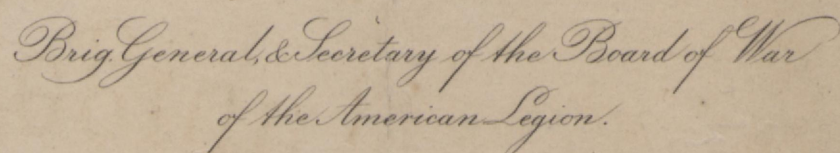 Brig. General, & Secretary of the Board of War
of the American Legion.